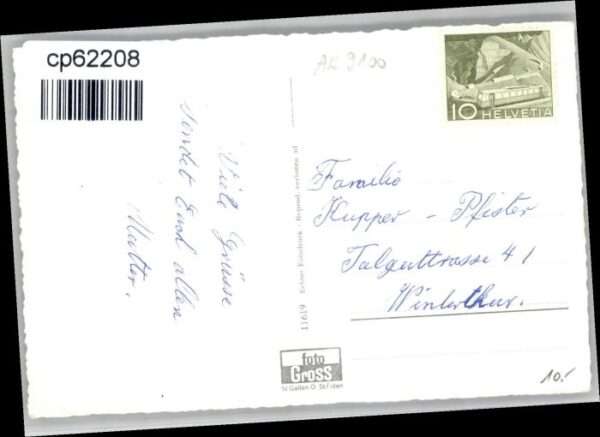 cp62208
AK 9100
10 HELVETIA
Viele Grüsse
sendet Euch allen
Mutter.
11619 Echter Fotodruck - Reprod. verboten
Familie
Kupper - Pfister
Talgutstrasse 41
Winterthur.
foto
Gross
St Gallen O.
10.-